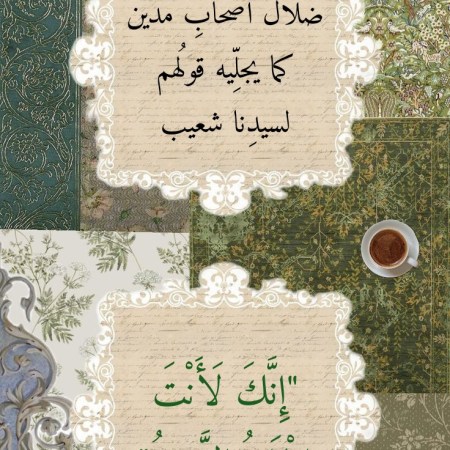 ضلال أصحابِ مدين
كما يجلّيه قولُهم
لسيدِنا شعيب
"إِنَّكَ لَأَنْتَ